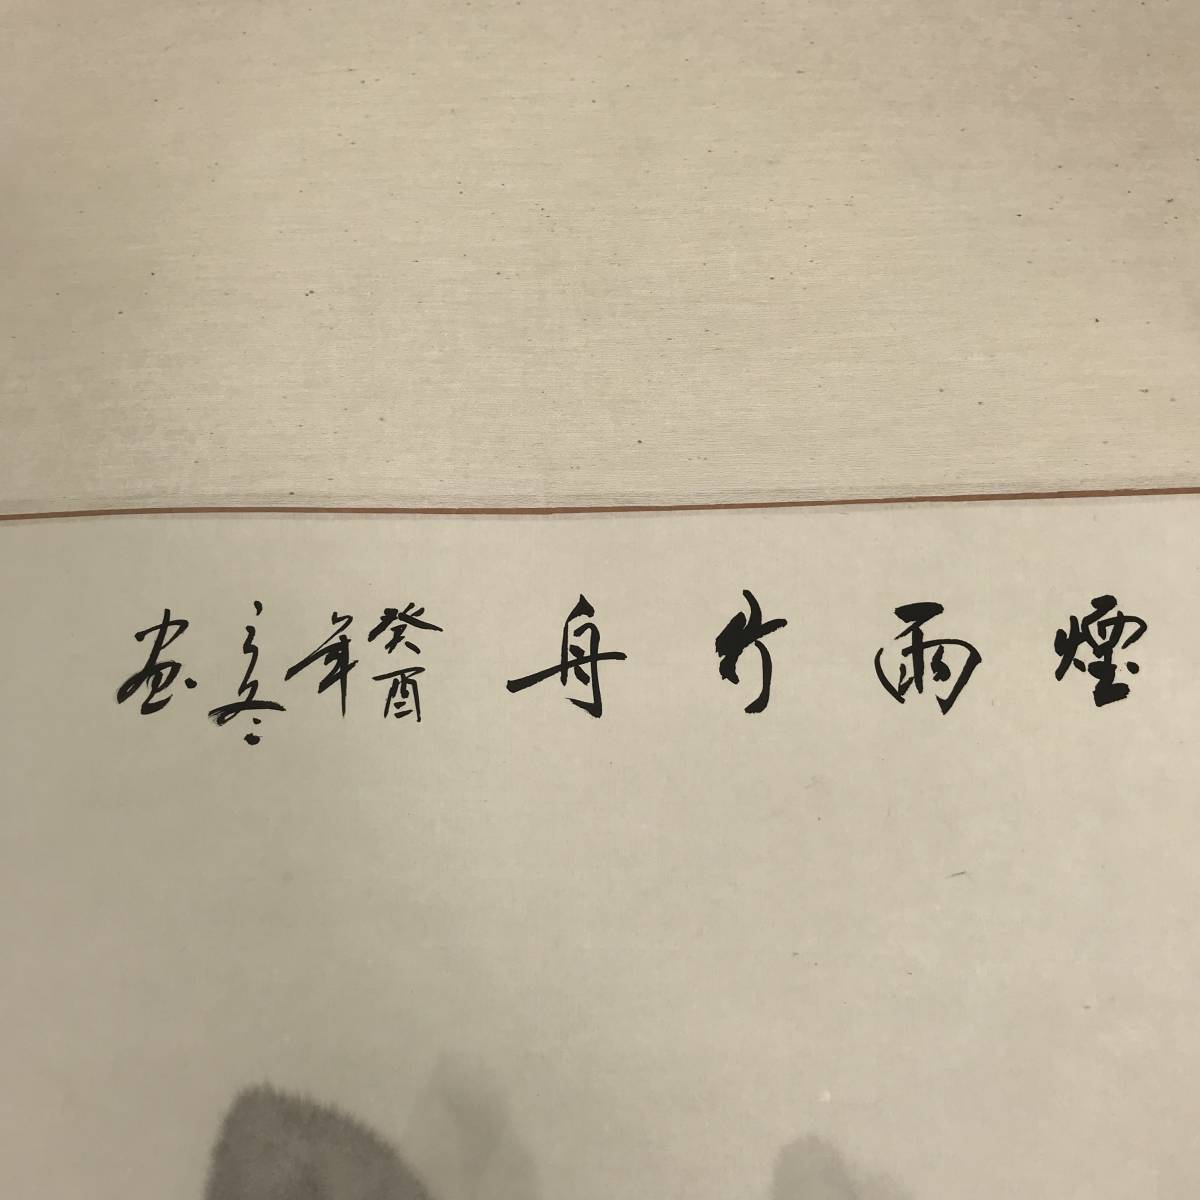 煙雨竹舟
癸酉年之冬画